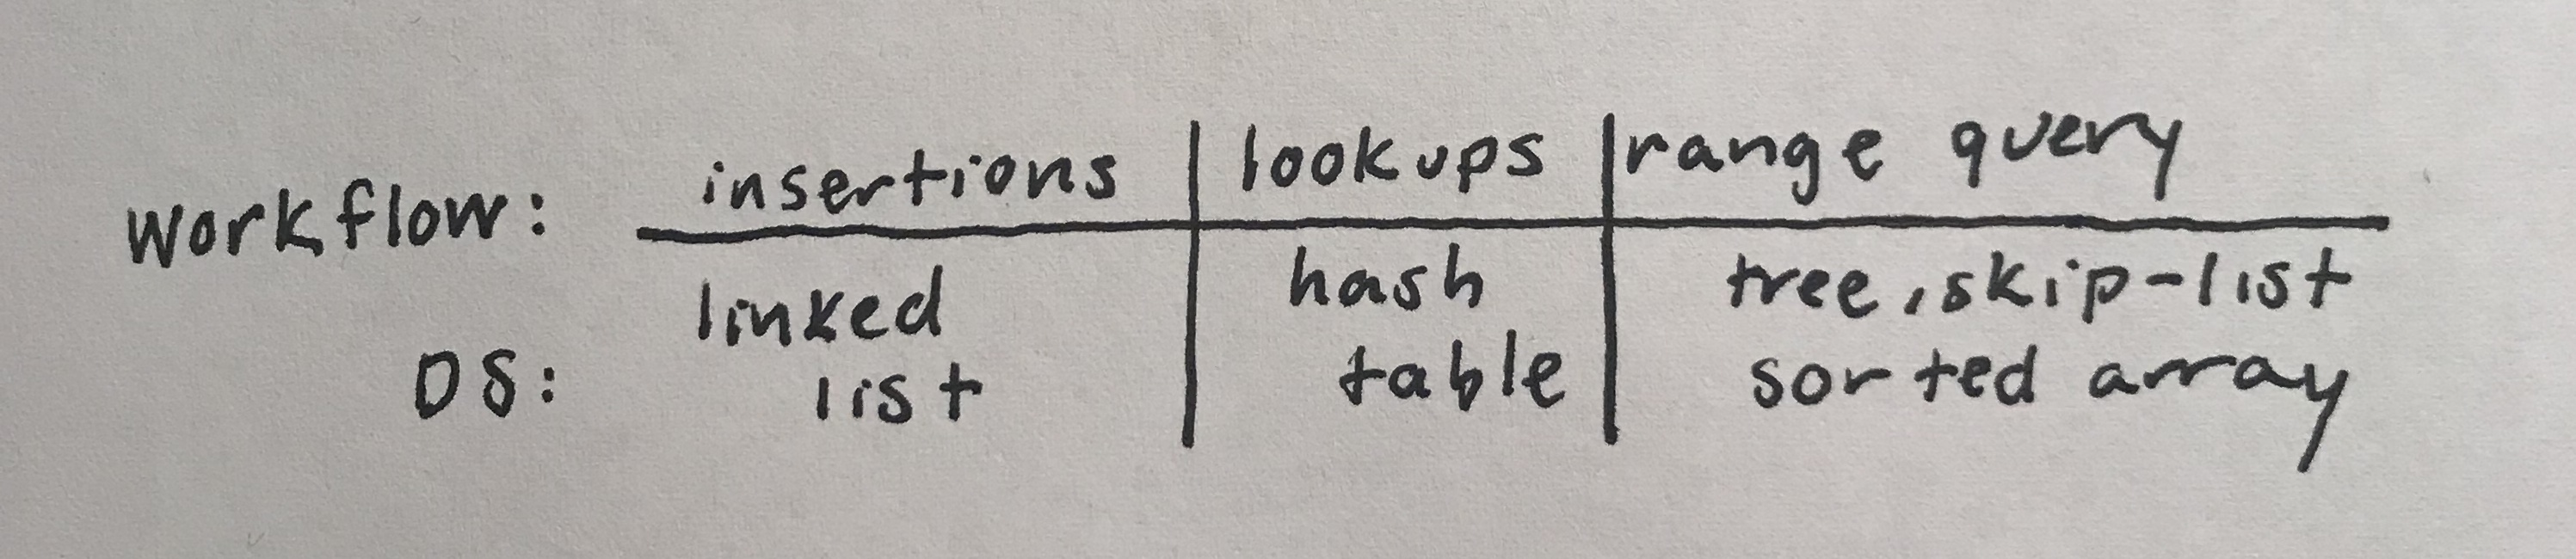 workflow: insertions | lookups | range query
DS: linked list | hash table | tree, skip-list sorted array